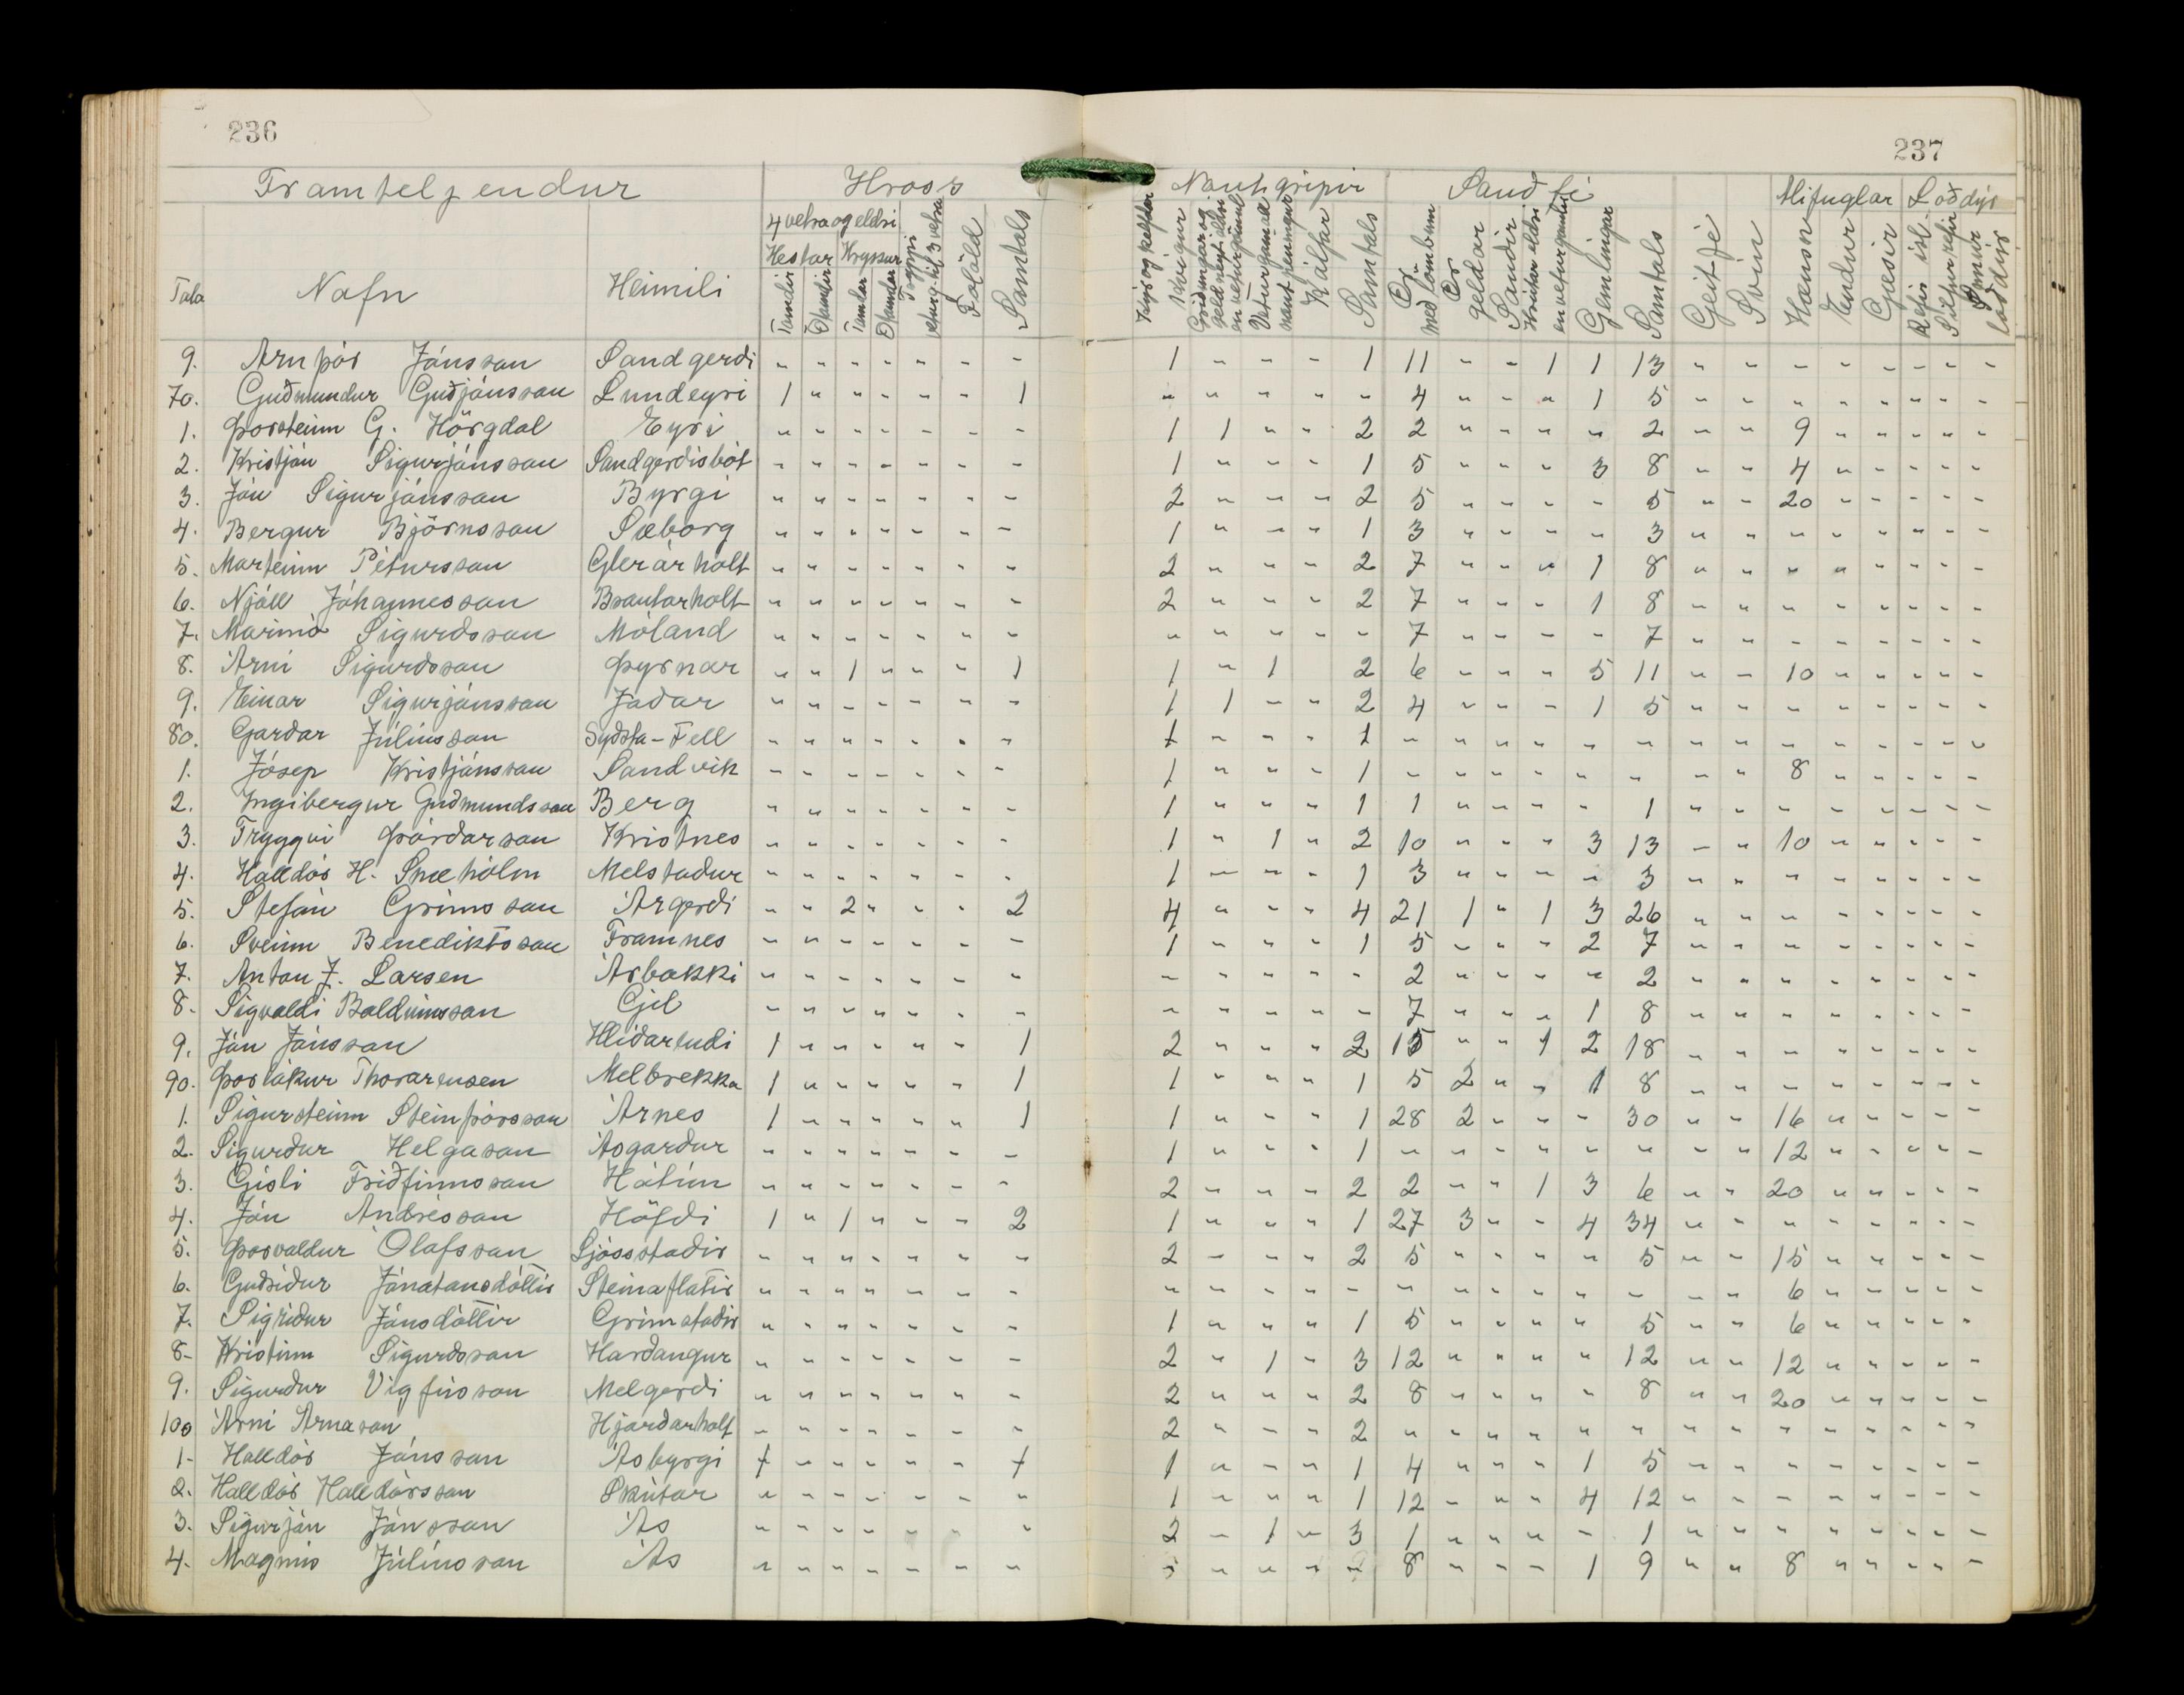 236
237
Framteljendur Hross Nautgripir Sauðfé Alifuglar Loðdýr
4 vetra og eldri
Hestar Hryssur
Tala Nafn Heimili Tamdir Ótamdir Tamdar Ótamdar Tryppi veturg. til 3 vetra Folöld Samtals Kýr og kelfdar kvígur Griðungar og geldneyti eldri en veturgömul Veturgamall nautpeningur Kálfar Samtals Ær með lömbum Ær geldar Sauðir Hrútar eldri en veturgamlir Gemlingar Samtals Geitfé Svín Hænsn Endur Gæsir Refir ísl. Silfurrefir Önnur loðdýr
9. Arnþór Jónsson Sandgerði " " " " " " " 1 " " " 1 11 " " 1 1 13 " " " " " " " "
70. Guðmundur Guðjónsson Lundeyri 1 " " " " " 1 " " " " " 4 " " " 1 5 " " " " " " " "
1. Þorsteinn G. Hörgdal Eyri " " " " " " " 1 1 " " 2 2 " " " " 2 " " 9 " " " " "
2. Kristján Sigurjónsson Sandgerðisbót " " " " " " " 1 " " " 1 5 " " " 3 8 " " 4 " " " " "
3. Jón Sigurjónsson Byrgi " " " " " " " 2 " " " 2 5 " " " " 5 " " 20 " " " " "
4. Bergur Björnsson Sæborg " " " " " " " 1 " " " 1 3 " " " " 3 " " " " " " " "
5. Marteinn Pétursson Glerárholt " " " " " " " 2 " " " 2 7 " " " 1 8 " " " " " " " "
6. Njáll Jóhannesson Brautarholt " " " " " " " 2 " " " 2 7 " " " 1 8 " " " " " " " "
7. Marinó Sigurðsson Móland " " " " " " " " " " " " 7 " " " " 7 " " " " " " " "
8. Árni Sigurðsson Þyrnar " " 1 " " " 1 1 " 1 2 6 " " " 5 11 " " 10 " " " " "
9. Einar Sigurjónsson Jaðar " " " " " " " 1 1 " " 2 4 " " " 1 5 " " " " " " " "
80. Garðar Júlíusson Syðsta-Fell " " " " " " " 1 " " " 1 " " " " " " " " " " " " " "
1. Jósep Kristjánsson Sandvík " " " " " " " 1 " " " 1 " " " " " " " " 8 " " " " "
2. Ingibergur Guðmundsson Berg " " " " " " " 1 " " " 1 1 " " " " 1 " " " " " " " "
3. Tryggvi Þórðarson Kristnes " " " " " " " 1 " 1 " 2 10 " " " 3 13 " " 10 " " " " "
4. Halldór H. Snæhólm Melstaður " " " " " " " 1 " " " 1 3 " " " " 3 " " " " " " " "
5. Stefán Grímsson Árgerði " " 2 " " " 2 4 " " " 4 21 1 " 1 3 26 " " " " " " " "
6. Sveinn Benediktsson Framnes " " " " " " " 1 " " " 1 5 " " " 2 7 " " " " " " " "
7. Anton J. Larsen Árbakki " " " " " " " " " " " " 2 " " " " 2 " " " " " " " "
8. Sigvaldi Baldvinsson Gil " " " " " " " " " " " " 7 " " " 1 8 " " " " " " " "
9. Jón Jónsson Hlíðarendi 1 " " " " " 1 2 " " " 2 15 " " 1 2 18 " " " " " " " "
90. Þorlákur Thorarensen Melbrekka 1 " " " " " 1 1 " " " 1 5 2 " " 1 8 " " " " " " " "
1. Sigursteinn Steinþórsson Árnes 1 " " " " " 1 1 " " " 1 28 2 " " " 30 " " 16 " " " " "
2. Sigurður Helgason Ásgarður " " " " " " " 1 " " " 1 " " " " " " " " 12 " " " " "
3. Gísli Friðfinnsson Hátún " " " " " " " 2 " " " 2 2 " " 1 3 6 " " 20 " " " " "
4. Jón Andrésson Höfði 1 " 1 " " " 2 1 " " " 1 27 3 " " 4 34 " " " " " " " "
5. Þorvaldur Ólafsson Ljósstaðir " " " " " " " 2 " " " 2 5 " " " " 5 " " 15 " " " " "
6. Guðríður Jónatansdóttir Steinaflatir " " " " " " " " " " " " " " " " " " " " 6 " " " " "
7. Sigríður Jónsdóttir Grímstaðir " " " " " " " 1 " " " 1 5 " " " " 5 " " 6 " " " " "
8- Kristinn Sigurðsson Harðangur " " " " " " " 2 " 1 " 3 12 " " " " 12 " " 12 " " " " "
9. Sigurður Vigfússon Melgerði " " " " " " " 2 " " " 2 8 " " " " 8 " " 20 " " " " "
100 Árni Árnason Hjarðarholt " " " " " " " 2 " " " 2 " " " " " " " " " " " " " "
1- Halldór Jónsson Ásbyrgi 1 " " " " " 1 1 " " " 1 4 " " " 1 5 " " " " " " " "
2. Halldór Halldórsson Skútar " " " " " " " 1 " " " 1 12 " " " 4 12 " " " " " " " "
3. Sigurjón Jónsson Ás " " " " " " " 2 " 1 " 3 1 " " " " 1 " " " " " " " "
4. Magnús Júlíusson Ás " " " " " " " " " " 8 " " " 1 9 " " 8 " " " " "